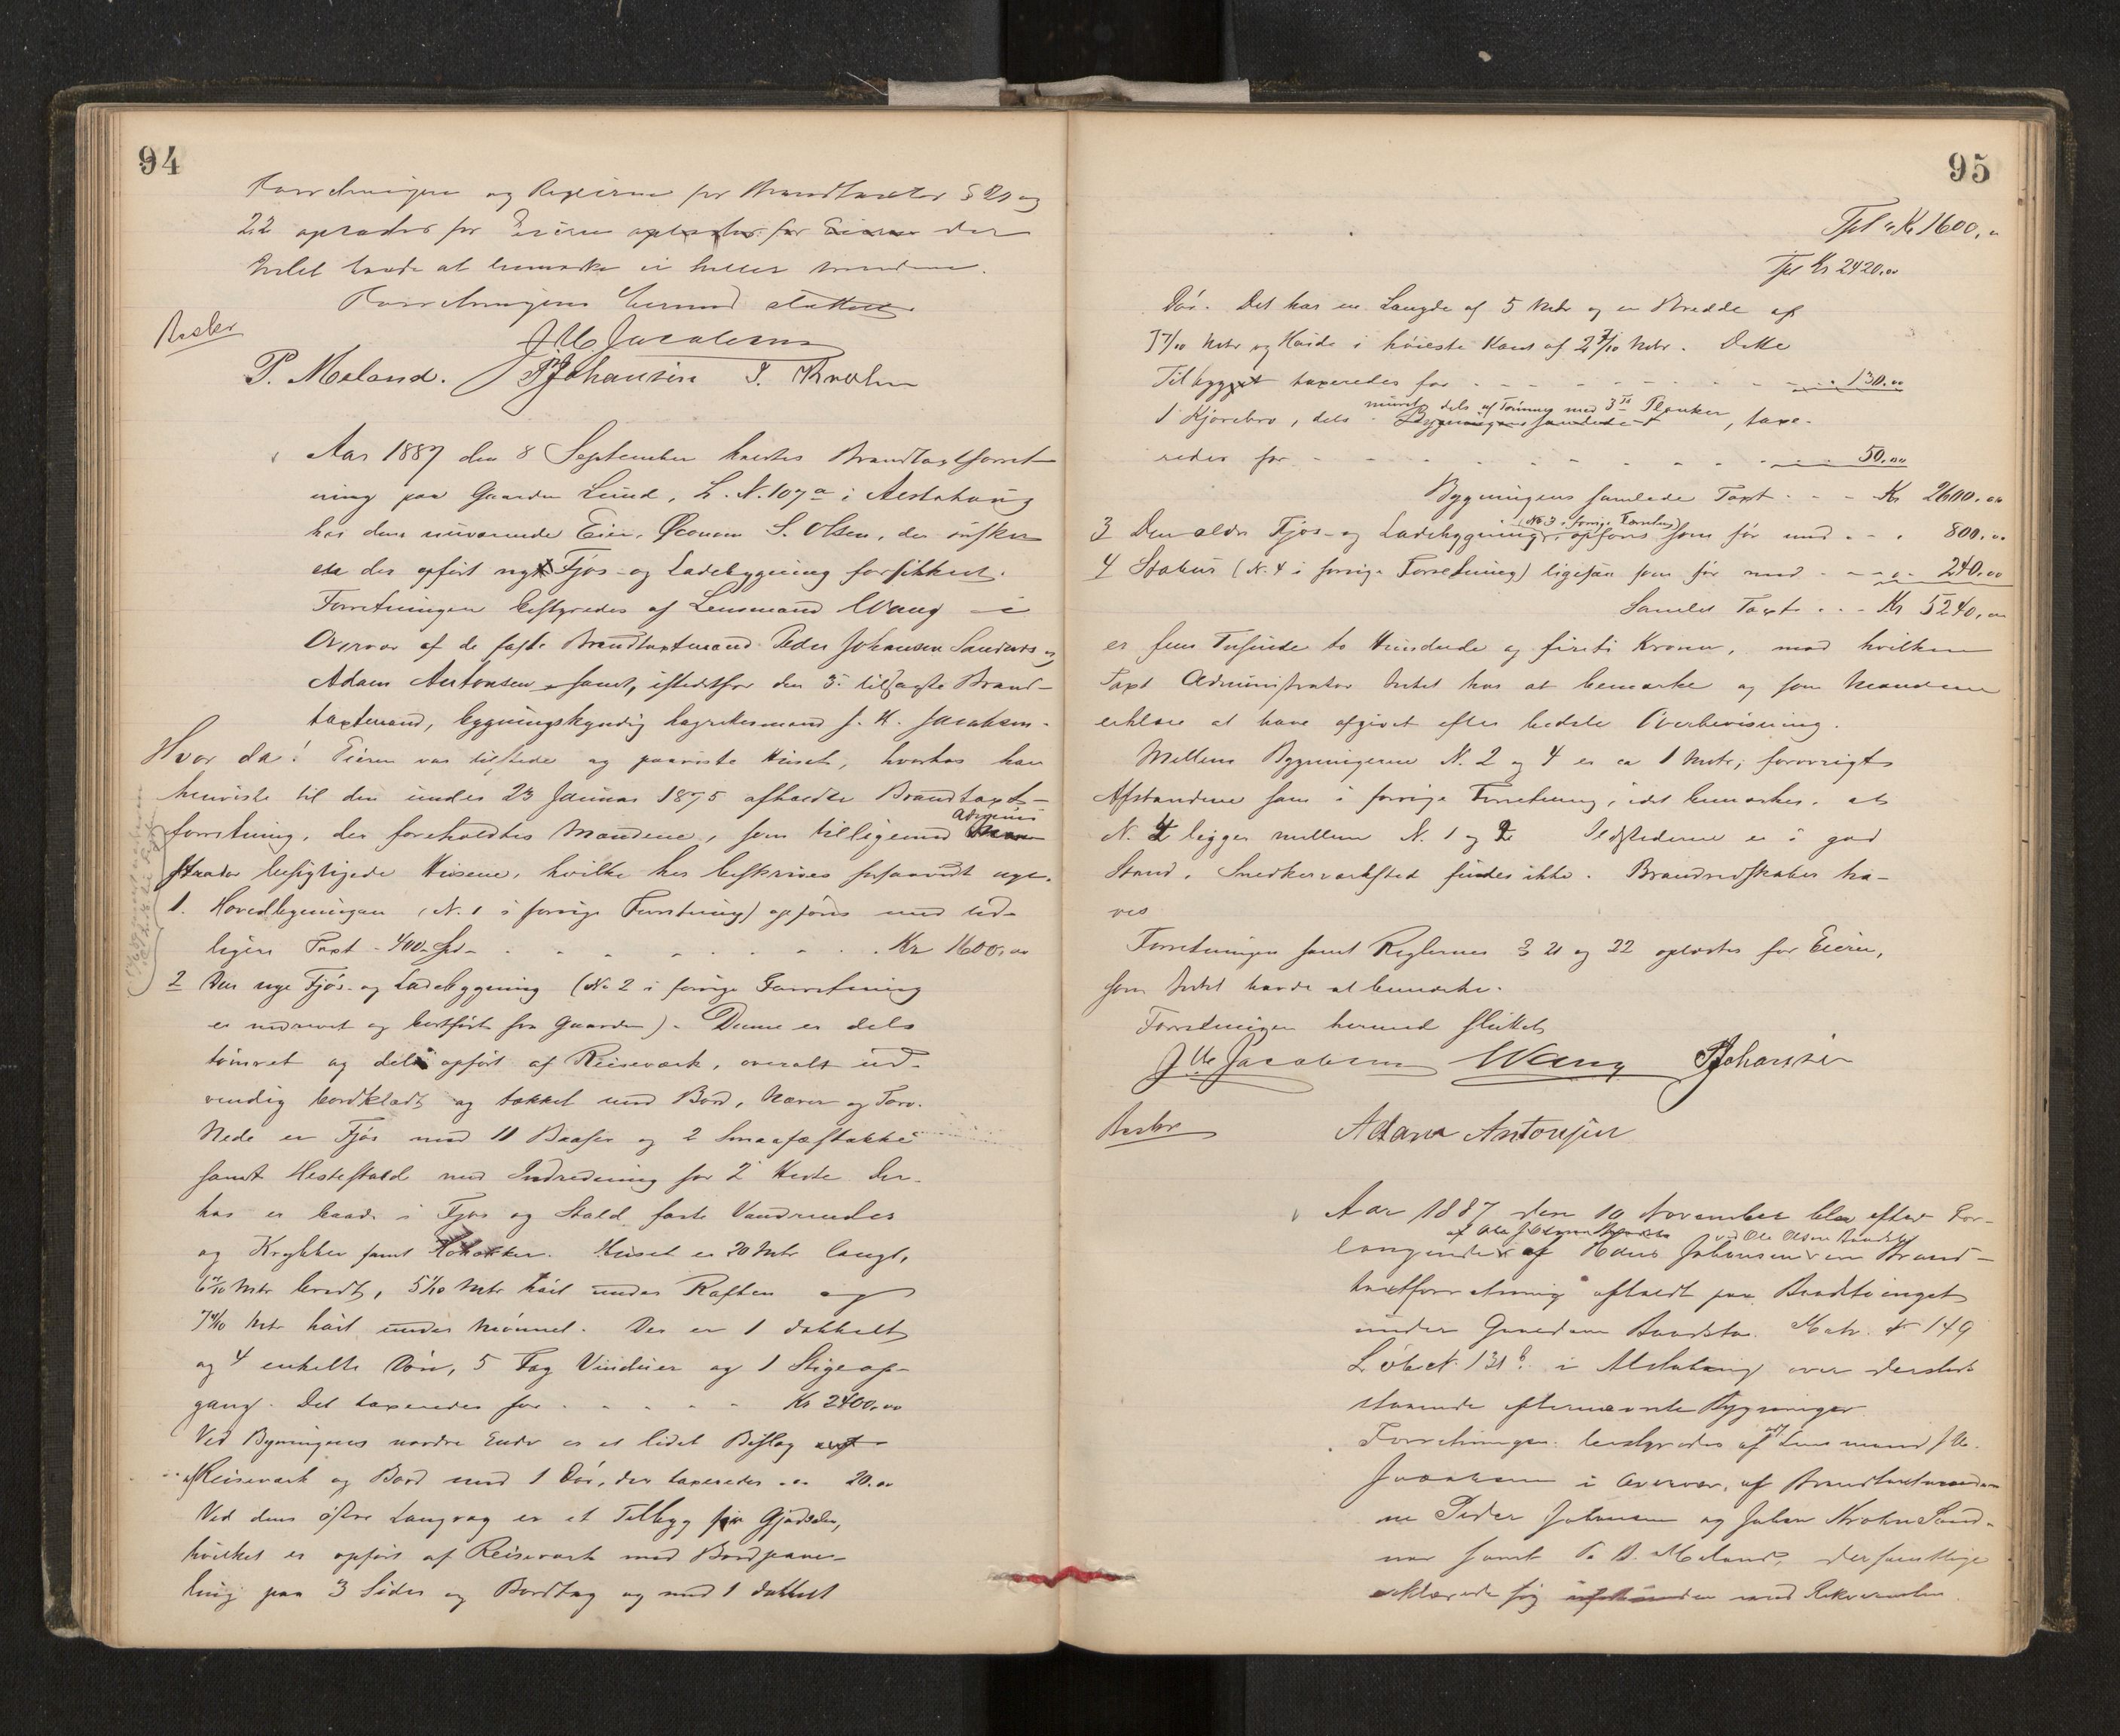 94
Forretningen og Reglerne for Brandtaxter § 21 og
22 oplæstes for Eieren oplæstes for Eieren der
Intet havde at bemærke ei heller Mændene.
Forretningen hermed sluttet.
Beskr
J M Jacobsen
P. Meland. PJohansen J. Krohn
Aar 1887 den 8 September holdtes Brandtaxtforret
ning paa Gaarden Lund, L. N. 107a i Alstahaug
hos dens nuværende Eier, Øconom S. Olsen, der ønsker
et der opført nyt Fjøs- og Ladebygning forsikkret.
Forretningen bestyredes af Lensmand Wang i
Overvær af de faste Brandtaxtmænd Peder Johansen Sandnes og
Adam Antonsen samt, istedetfor den 3. tilsagte Brand-
taxtmand, bygningskyndig Lagrettesmand J. M. Jacobsen.
Hvor da! Eieren var tilstede og paaviste Huset, hvorhos han
henviste til den under 23 Januar 1875 afholdte Brandtaxt-
forretning, der foreholdtes Mændene, som tilligemed Admini
strator besigtigede Husene, hvilke her beskrives forsaavidt nye.
1. Hovedbygningen (N. 1 i forrige Forretning) opføres med tid-
ligere Taxt - 400 Spd - . . . . . . . . Kr 1600,00
2 Den nye Fjøs- og Ladebygning (No 2 i forrige Forretning
er nedrevet og bortført fra Gaarden). Denne er dels
tømret og dels opført af Reisverk, overalt ud-
vendig bordklædt og tækket med Bord, Næver og Torv.
Nede er Fjøs med 11 Baaser og 2 Smaafæstakke
samt Hestestald med Indredning for 2 Heste. Der-
hos er baade i Fjøs og Stald faste Vandrender
og Krybber samt . Huset er 20 Mtr langt,
bredt, 5 /10 Mtr høit under Raften og
7 /10 Mtr høit under Mønnet. Der er 1 dobbelt
og 4 enkelte Døre, 5 Fag Vinduer og 1 Stigeop-
gang. Det taxeredes for . . . . . Kr 2400,00
Ved Bygningens nordre Ende er et lidet Bislag
af Reisverk og Bord med 1 Dør, der taxeredes . . 20.00
Ved dens østre Langvæg er et Tilbyg for Gjødselen,
hvilket er opført af Reisverk med Bordpane-
ling paa 3 Sider og Bordtag og med 1 dobbelt
95
Tpt Kr 1600,00
Tpt Kr 2420,00
Dør. Det har en Længde af 5 Mtr og en Bredde af
3 7/10 Mtr og Høide i høieste Kant af 2 7/10 Mtr. Dette
Tilbygget taxeredes for . . . . . . . . 130.00
muret, dels af Tømmer med 3 Ts Planker
1 Kjørebro, dels Bygningens samlede T , taxe-
redes for . . . . . . . . 50,00
Bygningens samlede Taxt . . . Kr 2600.00
(No 3 i forrige Forretng)
3 Den ældre Fjøs- og Ladebygning, opføres som før med . . . 800.00
4 Stabur (N. 4 i forrige Forretning) ligesaa som før med . . . 240.00
Samlet Taxt . . . Kr 5240,00
er fem Tusinde to Hundrede og firti Kroner, mod hvilken
Taxt Administrator Intet har at bemærke og som Mændene
erklære at have afgivet efter bedste Overbevisning.
Mellem Bygningerne N. 2 og 4 er ca 1 Mtr; forøvrigt
Afstandene som i forrige Forretning, idet bemærkes, at
N. 4 ligger mellem N. 1 og 2 Ildstederne er i god
Stand. Snedkerværksted findes ikke. Brandredskaber ha-
ves
Forretningen samt Reglernes § 21 og 22 oplæstes for Eieren,
som Intet havde at bemærke.
Forretningen hermed sluttet
J M Jacobsen Wang PJohansen
Beskr
Adam Antonsen
Aar 1887 den 10 November blev efter For-
af Ole ved Ole Olsen
langende af Hans Johansen en Brand-
taxtforretning afholdt paa
under Gaarden . Matr. No 149
Løbe N. 131 b. i Alstahaug over dersteds
staaende efternævnte Bygninger
Forretningen bestyredes af Lensmand J M.
Jacobsen i Overvær af Brandtaxtmænde-
ne Peder Johansen og Johan Krohn Sand-
nes samt P. B. Meland, der samtlige
erklærede sig med Rekvirenten.